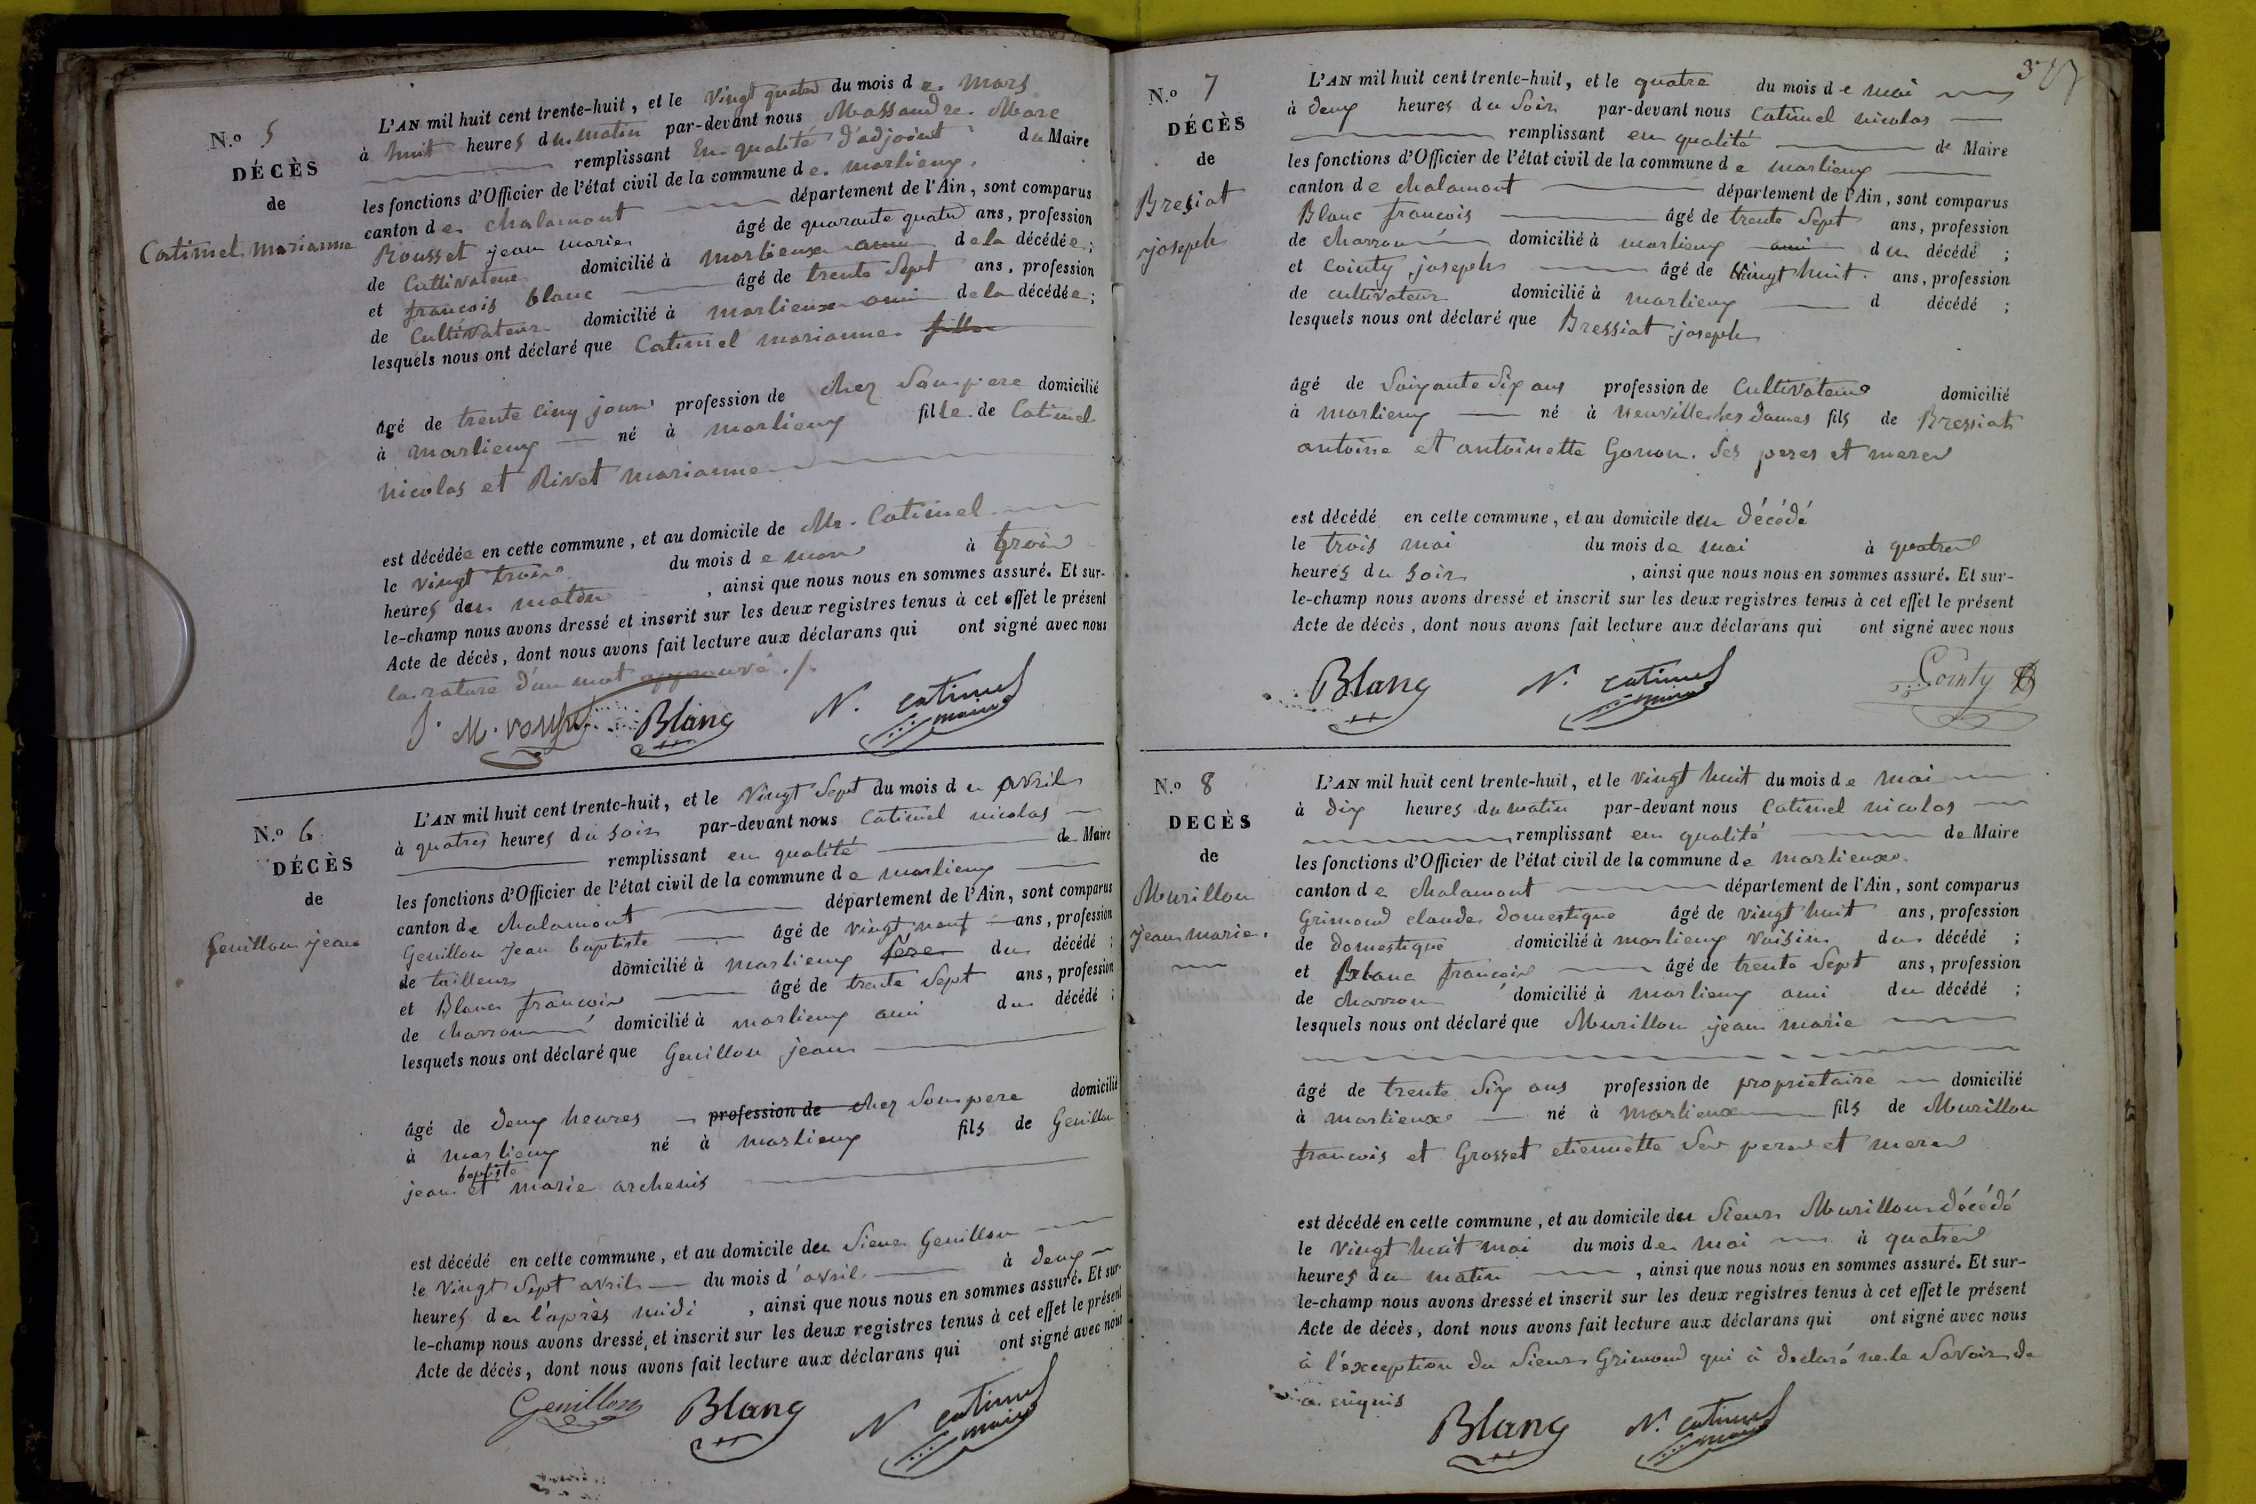 N.o 5
DÉCÈS
de
Catimel marianne
L'AN mil huit cent trente-huit, et le vingt quatre du mois de mars
à huit heures du matin par-devant nous Massandre Marc
remplissant en qualité d'adjoint du Maire
les fonctions d'Officier de l'état civil de la commune de marlieux.
canton de chalamont département de l'Ain, sont comparus
Rousset jean marie âgé de quarante quatre ans, profession
de Cultivateur domicilié à marlieux ami de la décédée;
et francois blanc âgé de trente Sept ans, profession
de Cultivateur domicilié à marlieux ami de la décédée;
lesquels nous ont déclaré que Catimel marianne fille
âgé de trente cinq jours profession de chez Son pere domicilié
à marlieux né à marlieux fille de Catimel
nicolas et Rivet marianne
est décédée en cette commune, et au domicile de Mr. Catimel
le vingt trois du mois de mars à trois
heures du matin, ainsi que nous nous en sommes assuré. Et sur-
le-champ nous avons dressé et inscrit sur les deux registres tenus à cet effet le présent
Acte de décès, dont nous avons fait lecture aux déclarans qui ont signé avec nous
la rature d'un mot approuvé ./.
J. M. rousset Blanc N. catimel
maire
N.o 6
DÉCÈS
de
Genillon jean
L'AN mil huit cent trente-huit, et le Vingt Sept du mois d avril
à quatres heures du soir par-devant nous Catimel nicolas
remplissant en qualité de Maire
les fonctions d'Officier de l'état civil de la commune de marlieux
canton de chalamont département de l'Ain, sont comparus
Genillon Jean baptiste âgé de vingt neuf ans, profession
de tailleur domicilié à marlieux père du décédé;
et Blanc francois âgé de trente Sept ans, profession
de charron domicilié à marlieux ami du décédé;
lesquels nous ont déclaré que Genillon jean
âgé de deux heures profession de chez Son pere domicilié
à marlieux né à marlieux fils de Genillon
jean baptiste et marie archenis
est décédé en cette commune, et au domicile du Sieur Genillon
le Vingt Sept avril du mois d'avril à deux
heures de l'après midi, ainsi que nous nous en sommes assuré. Et sur-
le-champ nous avons dressé et inscrit sur les deux registres tenus à cet effet le présent
Acte de décès, dont nous avons fait lecture aux déclarans qui ont signé avec nous
Genillon Blanc N catimel
maire
N.o 7
DÉCÈS
de
Bresiat
joseph
L'AN mil huit cent trente-huit, et le quatre du mois de mai
à deux heures du Soir par-devant nous Catimel nicolas
remplissant en qualité de Maire
les fonctions d'Officier de l'état civil de la commune de marlieux
canton de chalamont département de l'Ain, sont comparus
Blanc francois âgé de trente Sept ans, profession
de charron domicilié à marlieux ami du décédé;
et Cointy joseph âgé de vingt huit ans, profession
de cultivateur domicilié à marlieux d décédé;
lesquels nous ont déclaré que Bressiat joseph
âgé de Soixante Six ans profession de Cultivateur domicilié
à marlieux né à neuville les dames fils de Bressiat
antoine et antoinette Gonon. Ses peres et meres
est décédé en cette commune, et au domicile du décédé
le trois mai du mois de mai à quatre
heures du soir, ainsi que nous nous en sommes assuré. Et sur-
le-champ nous avons dressé et inscrit sur les deux registres tenus à cet effet le présent
Acte de décès, dont nous avons fait lecture aux déclarans qui ont signé avec nous
Blanc N. catimel Cointy
maire
N.o 8
DECÈS
de
Murillon
jean marie.
L'AN mil huit cent trente-huit, et le vingt huit du mois de mai
à dix heures du matin par-devant nous Catimel nicolas
remplissant en qualité de Maire
les fonctions d'Officier de l'état civil de la commune de marlieux
canton de chalamont département de l'Ain, sont comparus
Grimoud claude domestique âgé de vingt huit ans, profession
de domestique domicilié à marlieux voisin du décédé;
et Blanc francois âgé de trente Sept ans, profession
de charron domicilié à marlieux ami du décédé;
lesquels nous ont déclaré que Murillon jean marie
âgé de trente Six ans profession de propriétaire domicilié
à marlieux né à marlieux fils de Murillon
francois et Grosset etiennette Ses peres et meres
est décédé en cette commune, et au domicile du Sieur Murillon décédé
le vingt huit mai du mois de mai à quatre
heures du matin, ainsi que nous nous en sommes assuré. Et sur-
le-champ nous avons dressé et inscrit sur les deux registres tenus à cet effet le présent
Acte de décès, dont nous avons fait lecture aux déclarans qui ont signé avec nous
à l'exception du Sieur Grimoud qui à declaré ne le Savoir de
ce enquis
Blanc N. catimel
maire